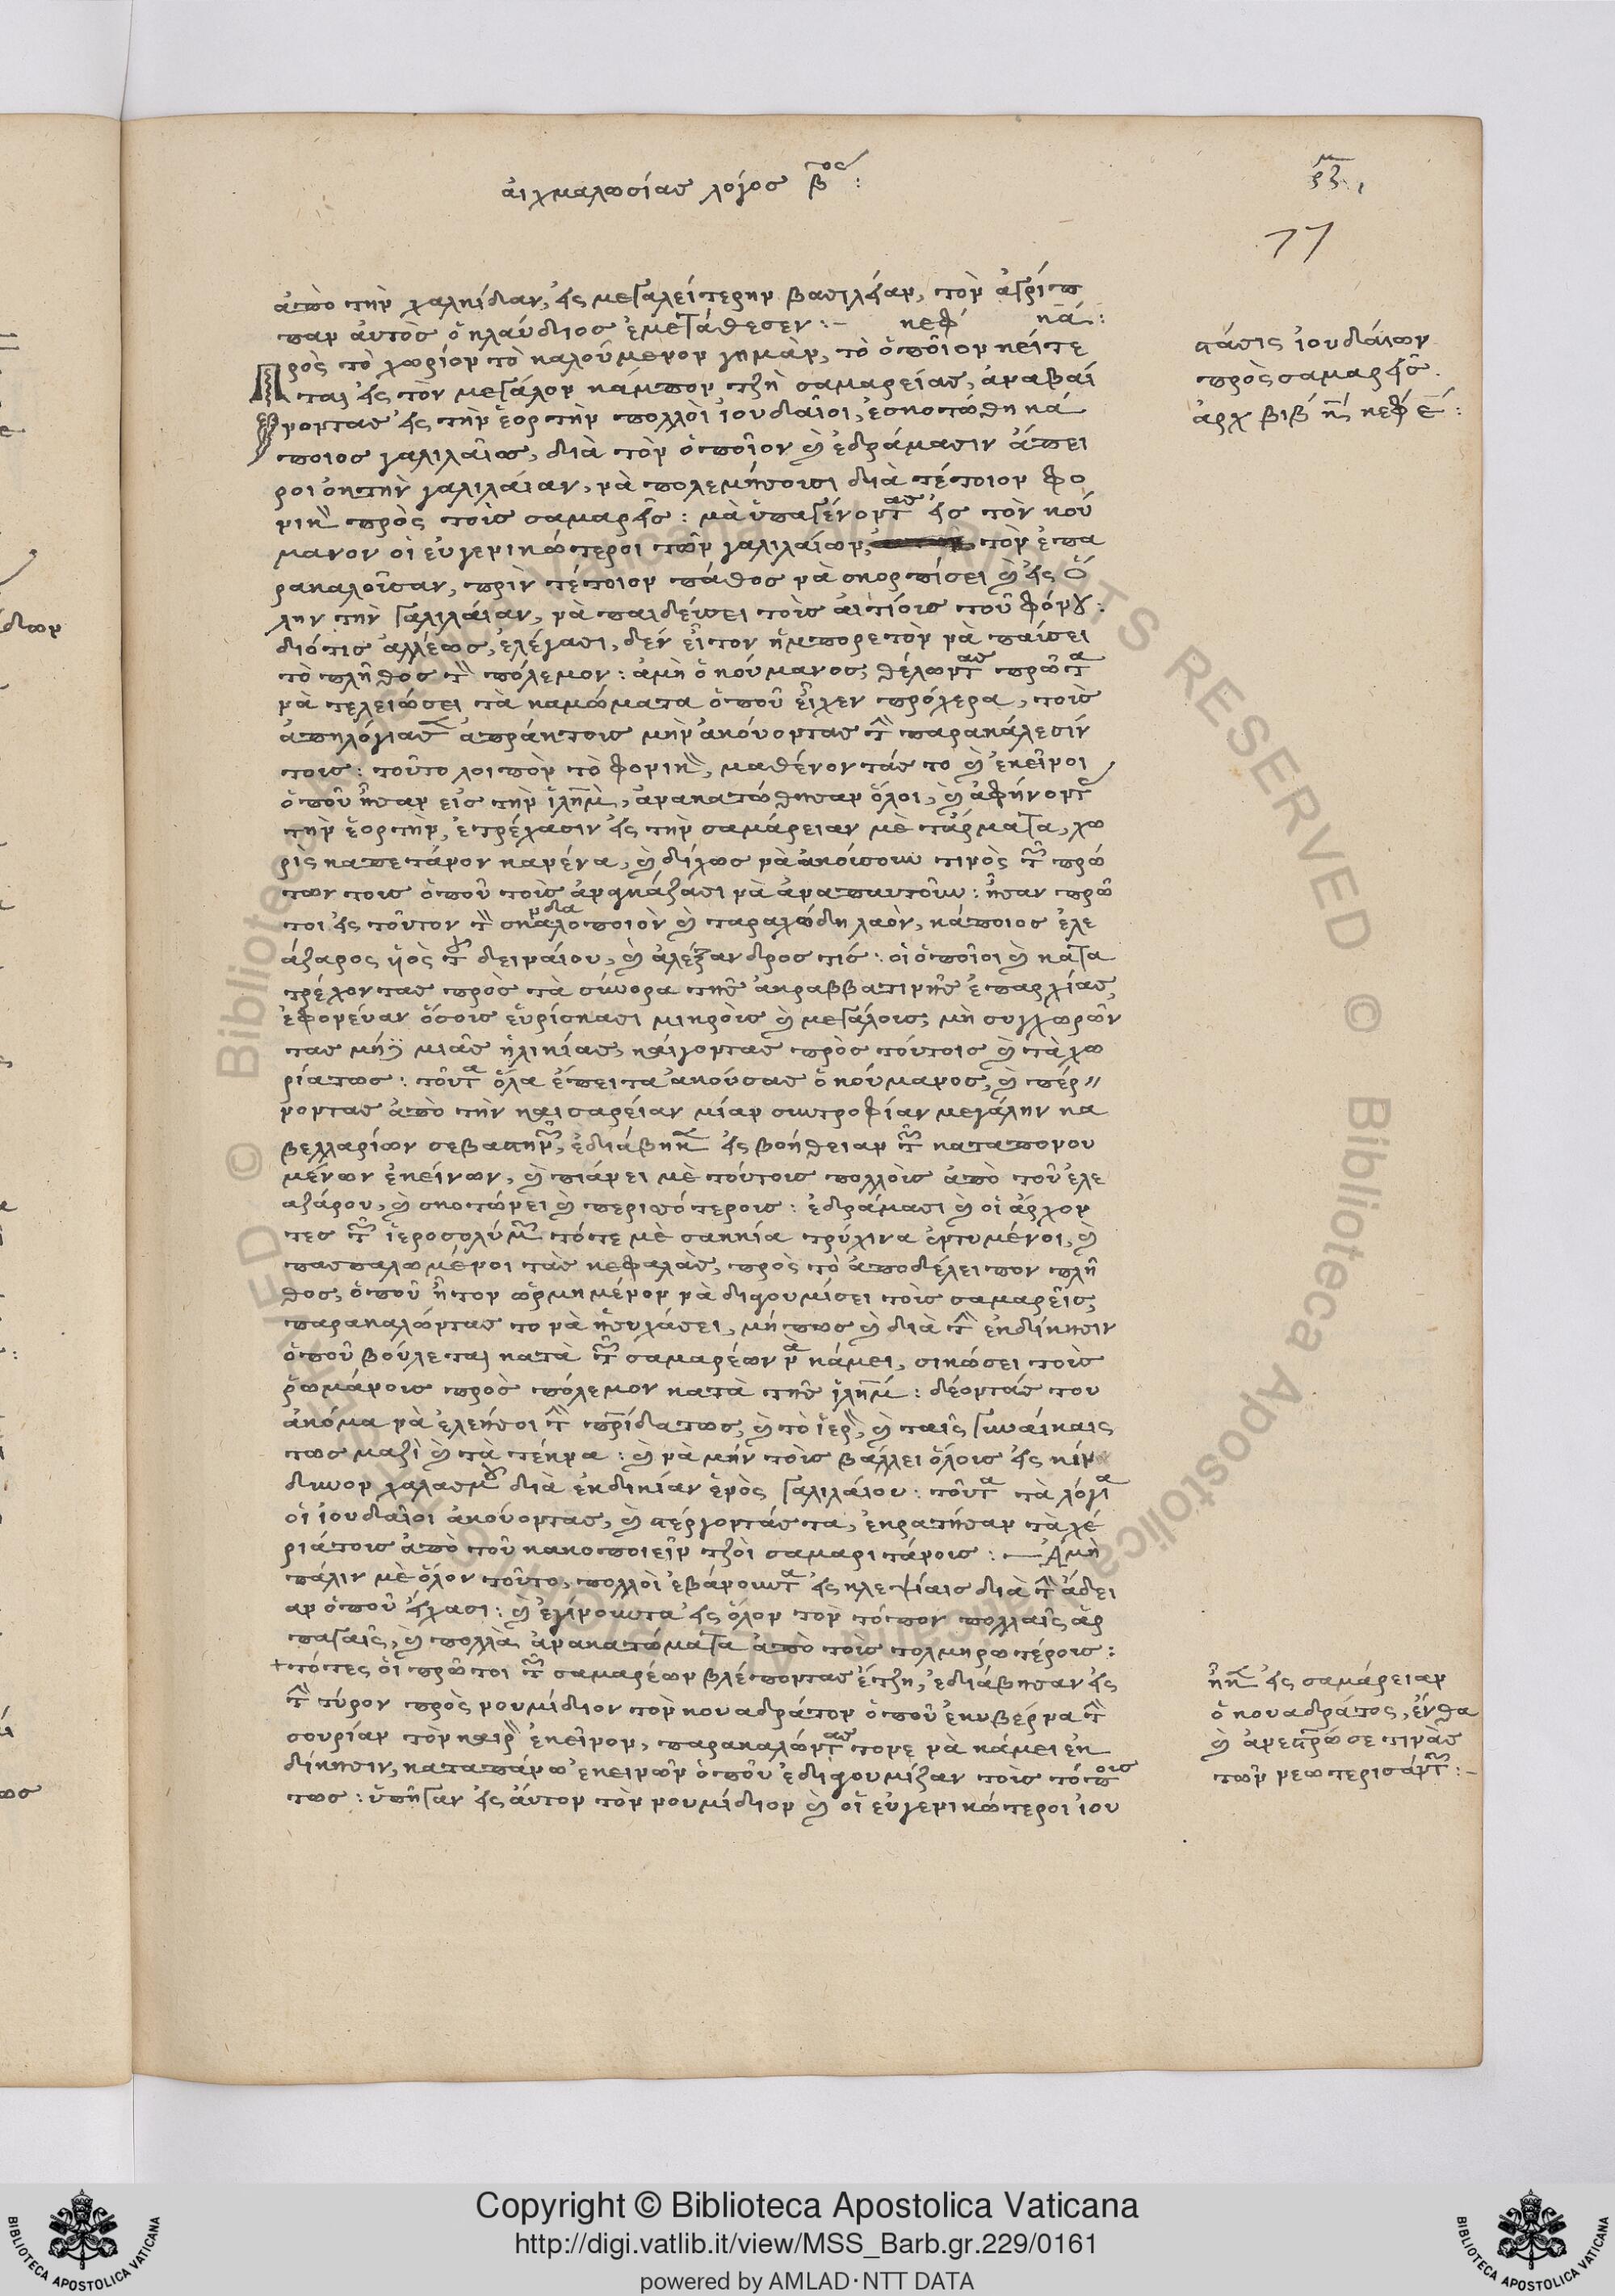 αἰχμαλωσίας λόγος β^ος:
77
ἀπὸ τὴν χαλκίδαν, εἰς μεγαλείτερην βασιλείαν, τὸν ἀγρίπ
παν ἀυτὸς ὁ κλαύδιος ἐμετάθεσεν:– κεφ κα:
Πρὸς τὸ χωρίον τὸ καλούμενον γημὰν, τὸ ὁποῖον κείτε
ται εἰς τὸν μεγάλον κάμπον τῆς σαμαρείας, ἀναβαί
νοντας εἰς τὴν ἑορτὴν πολλοὶ ἰουδαῖοι, ἐσκοτώθη κά
ποιος γαλιλαῖος, διὰ τὸν ὁποῖον καὶ ἐδράμασιν ἄπει
ροι ἐκ τὴν γαλιλαίαν, νὰ πολεμήσουσι διὰ τέτοιον φο
νικὸν πρὸς τοὺς σαμαρεῖς: μὰ ὑπαγένοντας εἰς τὸν κού
μανον οἱ εὐγενικώτεροι τῶν γαλιλαίων, τὸν ἐπα
ρακαλοῦσαν, πρὶν τέτοιον πάθος νὰ σκορπίσει καὶ εἰς ὅ
λην τὴν γαλιλαίαν, νὰ παιδεύσει τοὺς αἰτίους τοῦ φόνου:
διότις ἀλλέως, ἐλέγασι, δέν εἶτον ἠμπορετὸν νὰ παύσει
τὸ πλῆθος τὸν πόλεμον: ἀμὴ ὁ κούμανος, θέλωντας πρῶτα
νὰ τελειώσει τὰ καμώματα ὁποῦ εἶχεν πρόχερα, τοὺς
ἀπηλόγιασε ἀπράκτους μὴν ἀκούοντας τὴν παρακάλεσίν
τους: τοῦτο λοιπὸν τὸ φονικὸν, μαθένοντάς το καὶ ἐκεῖνοι
ὁποῦ ἦσαν εἰς τὴν ἱλημ, ἀνακατώθησαν ὅλοι, καὶ ἀφήνοντας
τὴν ἑορτὴν, ἐτρέχασιν εἰς τὴν σαμάρειαν μὲ τἄρματα, χω
ρὶς καπετάνον κανένα, καὶ δίχως νὰ ἀκούσουν τινὸς τῶν πρώ
των τους ὁποῦ τοὺς ἀναγκάζασι νὰ ἀναπαυτοῦν: ἦσαν πρῶ
τοι εἰς τοῦτον τὸν σκανδαλοποιὸν καὶ ταραχώδη λαὸν, κάποιος ἐλε
άζαρος ὑὸς τοῦ δειναίου, καὶ ἀλέξανδρος τίς: οἱ ὁποῖοι καὶ κατα
τρέχοντας πρὸς τὰ σύνορα τῆς ἀκραββατινῆς ἐπαρχίας,
ἐφονεύαν ὅσους εὑρίσκασι μικροὺς καὶ μεγάλους, μὴ συγχωρῶν
τας μήδε μιᾶς ἡλικίας, καίγοντας πρὸς τούτοις καὶ τὰ χω
ρίατως: τοῦτα ὅλα ἔπειτα ἀκούσας ὁ κούμανος, καὶ πέρ
νοντας ἀπὸ τὴν καισαρείαν μίαν συντροφίαν μεγάλην κα
βελλαρίων σεβαστηνῶν, ἐδιάβηκε εἰς βοήθειαν τῶν καταπονου
μένων ἐκείνων, καὶ πιάνει μὲ τούτοις πολλοὺς ἀπὸ τοῦ ἐλε
αζάρου, καὶ σκοτώνει καὶ περισότερους: ἐδράμασι καὶ οἱ ἄρχον
τες τῶν ἱεροσολύμων τότε μὲ σακκία τρύχινα ἐντυμένοι, καὶ
πασπαλωμένοι τὰς κεφαλὰς, πρὸς τὸ ἀποδέλειπον πλῆ
θος, ὁποῦ ἦτον ὡρμημένον νὰ διαγουμίσει τοὺς σαμαρεῖς,
παρακαλώντας το νὰ ἡσυχάσει, μήπως καὶ διὰ τὴν ἐκδίκησιν
ὁποῦ βούλεται κατὰ τῶν σαμαρέων νὰ κάμει, σικώσει τοὺς
ῥωμάνους πρὸς πόλεμον κατὰ τῆς ἱλημ: δέοντάς του
ἀκόμα νὰ ἐλεήσοι τὴν πρίδατως, καὶ τὸ ἱερὸν, καὶ ταῖς γυναίκαις
τως μαζὶ καὶ τὰ τέκνα: καὶ νὰ μὴν τοὺς βάλλει ὅλους εἰς κίν
δυνον χαλασμοῦ διὰ ἐκδικίαν ἑνὸς γαλιλαίου: τοῦτα τὰ λόγια
οἱ ἰουδαῖοι ἀκούοντας, καὶ στέργοντάς τα, ἐκρατήσαν τὰ χέ
ριάτους ἀπὸ τοῦ κακοποιεῖν τοὺς σαμαριτάνους:— Ἀμὴ
πάλιν μὲ ὅλον τοῦτο, πολλοὶ ἐβάνουντα εἰς κλεψίαις διὰ τὴν ἄδει
αν ὁποῦ εἴχασι: καὶ ἐγίνουντα εἰς ὅλον τὸν τόπον πολλαῖς ἁρ
παγαῖς, καὶ πολλὰ ἀνακατώματα ἀπὸ τοὺς τολμηρωτέρους:
+ τότες οἱ πρῶτοι τῶν σαμαρέων βλέποντας ἔτζη, ἐδιάβησαν εἰς
τὴν τύρον πρὸς νουμίδιον τὸν κουαδράτον ὁποῦ ἐκυβέρνα τὴν
σουρίαν τὸν καιρὸν ἐκεῖνον, παρακαλώντας τονε νὰ κάμει ἐκ
δίκησιν, καταπάνω ἐκεινῶν ὁποῦ ἐδιαγουμίζαν τοὺς τόπους
τως: ὑπῆγαν εἰς ἀυτον τὸν νουμίδιον καὶ οἱ εὐγενικώτεροι ἰου
στάσις ἰουδαίων
πρὸς σαμαρεῖς.
ἀρχ βιβ κ κεφ ε:
ἧκε εἰς σαμάρειαν
ὁ κουαδράτος, ἔνθα
καὶ ἀνεσταύρωσε τινὰς
τῶν νεωτερισάντων:–
Copyright © Biblioteca Apostolica Vaticana
http://digi.vatlib.it/view/MSS_Barb.gr.229/0161
powered by AMLAD·NTT DATA
BIBLIOTECA APOSTOLICA VATICANA
BIBLIOTECA APOSTOLICA VATICANA